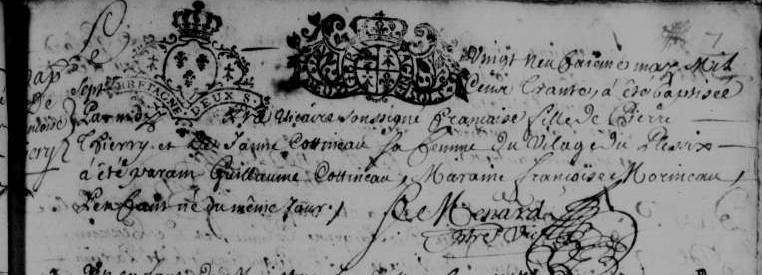 Le Vingt neufviéme may Mil
Sept Cent Trante, a été baptisée
BRETAGNE DEUX S
Par m... Vicaire Soussigné Françoise fille de Pierre
Thierry et de Janne Cottineau Sa femme du Village du Plessix
a été parain Guillaume Cottineau, Maraine Françoise Morineau,
L'enfant né du même Jour.
Bap
de
Menard